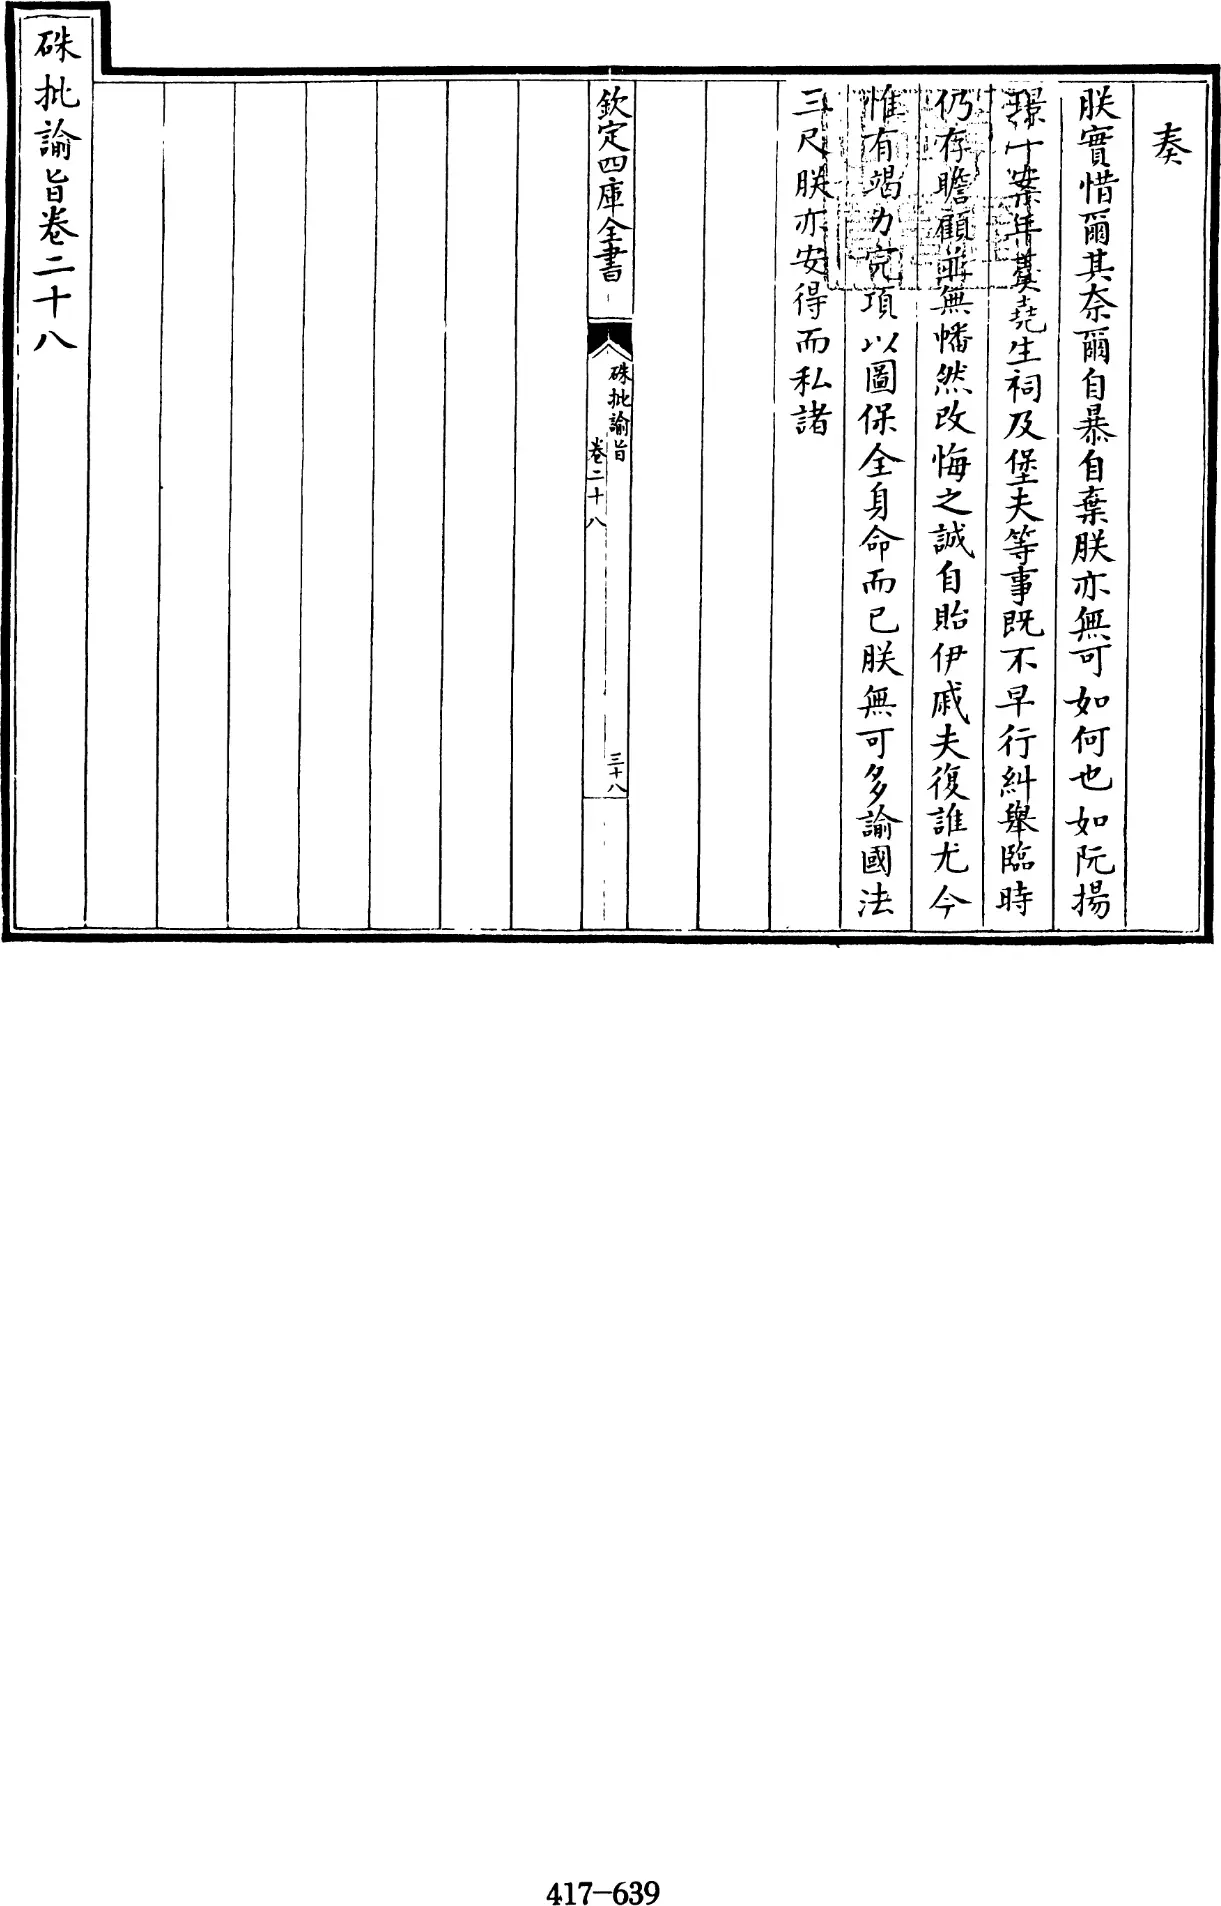 奏
朕實惜爾其奈爾自暴自棄朕亦無可如何也如阮揚
璟一案年羹堯生祠及堡夫等事既不早行糾舉臨時
仍存瞻顧並無幡然改悔之誠自貽伊戚夫復誰尤今
惟有竭力完項以圖保全身命而已朕無可多諭國法
三尺朕亦安得而私諸
欽定四庫全書
硃批諭旨
卷二十八
三十八
硃批諭旨卷二十八
417-639